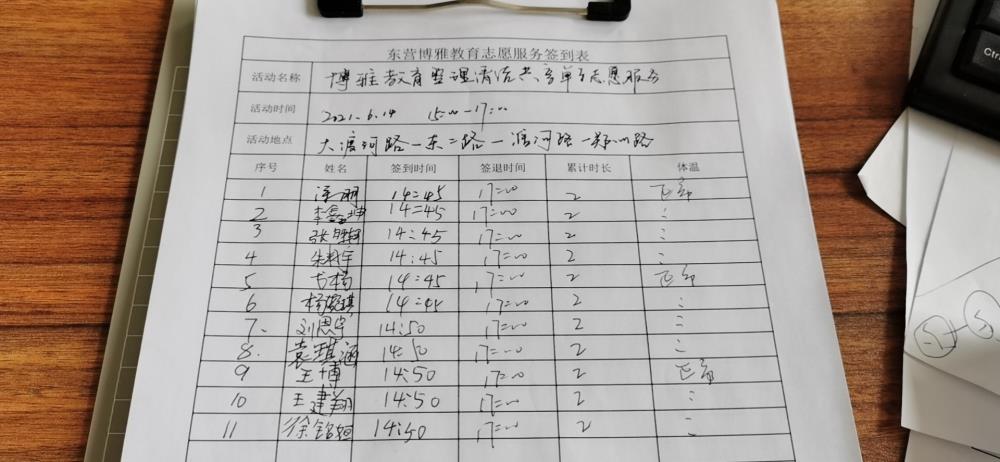 东营博雅教育志愿服务签到表
活动名称 博雅教育整理清洁共享单车志愿服务
活动时间 2021.6.14 15:00-17:00
活动地点 大渡河路-东二路-淮河路-郑州路
序号 姓名 签到时间 签退时间 累计时长 体温
1 14:45 17:00 2 正常
2 李鑫坤 14:45 17:00 2 :
3 14:45 17:00 2 :
4 14:45 17:00 2 :
5 14:45 17:00 2 正常
6 14:45 17:00 2 :
7. 刘思宇 14:50 17:00 2 :
8. 袁琪涵 14:50 17:00 2 :
9 王博 14:50 17:00 2 正常
10 王建翔 14:50 17:00 2 :
11 徐铭 14:50 17:00 2 :
Ctrl